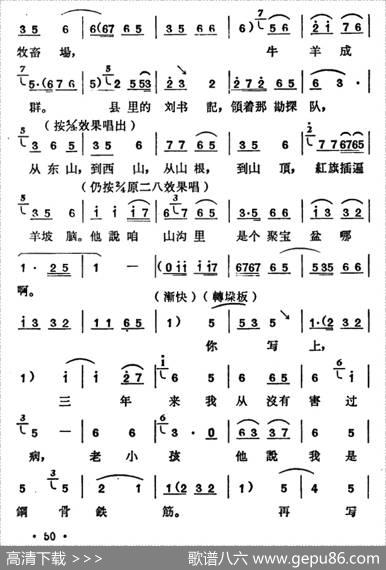 3 5 6 | 6(67 65 | 1 5 6 6 | 6) 5 6 | 2 i 7 6
牧畜場，牛羊成
5·(6 76 | 5) 2 5 53 | 2 3 | 2 2 2 6 5 | 6 3 ·
群。县里的刘书記，領着那勘探队，
(按⅜效果唱出)
3 6 5 | 3 5 6 | 7 7 6 5 | 3 5 | 7 7 6765
从东山，到西山，从山根，到山頂，紅旗插遍
(仍按2/4原二八效果唱)
3 5 6 | i i i7 | 6 7 65 | 3 5 3 5 | 6 6
羊坡脑。他說咱山沟里是个聚宝盆哪
1 · 2 5 | 1 — | (0 i i i i7 | 6767 6 5 | 535 6 6
啊。
(漸快)(轉垛板)
i 3 3 2 | 1 1 6 5 | 1) 5 | 5 3 5 | 1·(2 32
你写上，
1) i | i 2 7 | 6 5 | 6 5 | 6 6
三年来我从沒有害过
5 — | 6 6 | 3 · 0 | 6 3 3 7 | 6 5
病，老小孩他說我是
5 5 | 2 1 | 1(2 3 2 | 1) 5 | 4 5
鋼骨鉄筋。再写
· 50 ·
高清下载 >>>
歌谱八六 www.gepu86.com